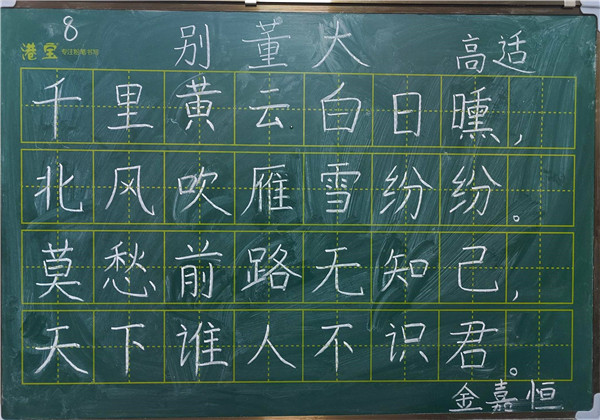 8
港宝 专注粉笔书写
别董大
高适
千里黄云白日曛,
北风吹雁雪纷纷。
莫愁前路无知己,
天下谁人不识君。
金嘉恒